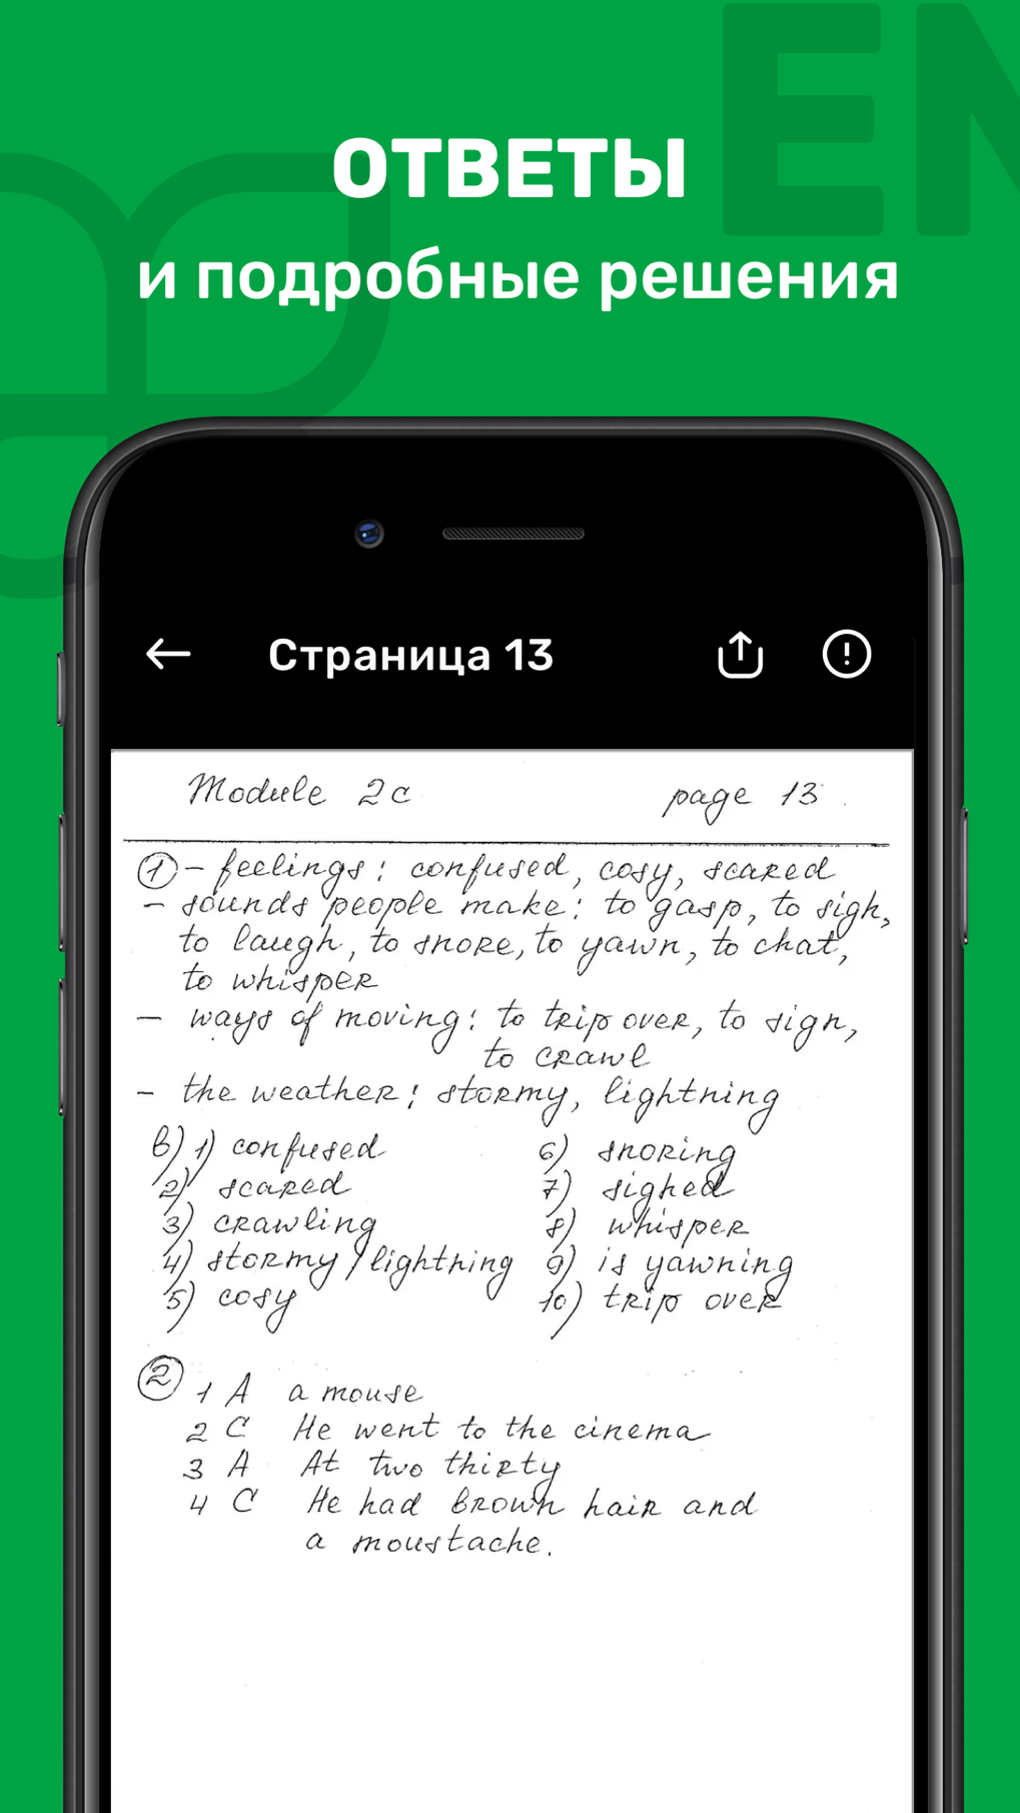 EN
ОТВЕТЫ
и подробные решения
Страница 13
Module 2c page 13.
1 - feelings: confused, cosy, scared
- sounds people make: to gasp, to sigh,
to laugh, to snore, to yawn, to chat,
to whisper
- ways of moving: to trip over, to sign,
to crawl
- the weather: stormy, lightning
b) 1) confused 6) snoring
2) scared 7) sighed
3) crawling 8) whisper
4) stormy/lightning 9) is yawning
5) cosy 10) trip over
2 1 A a mouse
2 C He went to the cinema
3 A At two thirty
4 C He had brown hair and
a moustache.